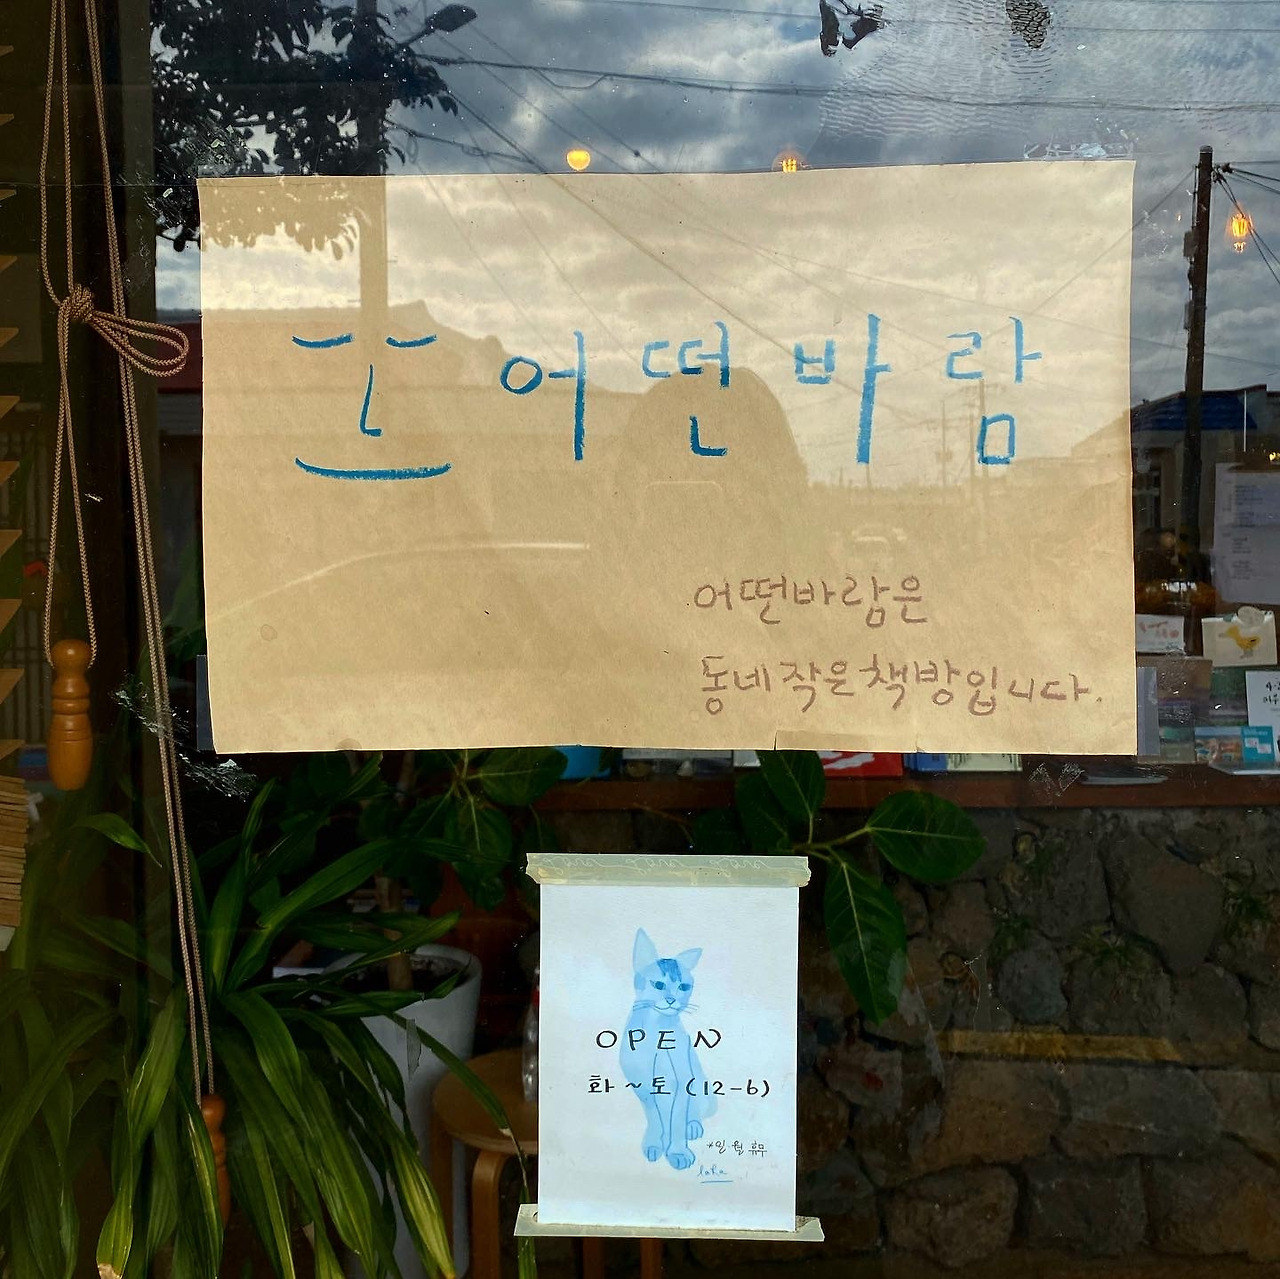 어떤바람
어떤바람은
동네 작은 책방입니다.
OPEN
화 ~ 토 (12-6)
*일·월 휴무
lala